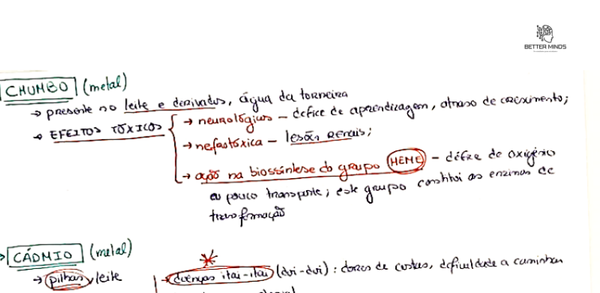 BETTER MINDS
CHUMBO (metal)
→ presente no leite e derivados, água da torneira
→ EFEITOS TÓXICOS → neurológios – défice de aprendizagem, atraso de crescimento;
→ nefrotóxica – lesões renais;
→ ação na biossíntese do grupo HEME – défice de oxigénio
ou pouco transporte; este grupo constitui as enzimas de
transformação
→ CÁDMIO (metal)
→ pilhas, leite
→ doenças itai-itai (dvi-dvi): dores de costas, dificuldade a caminhar